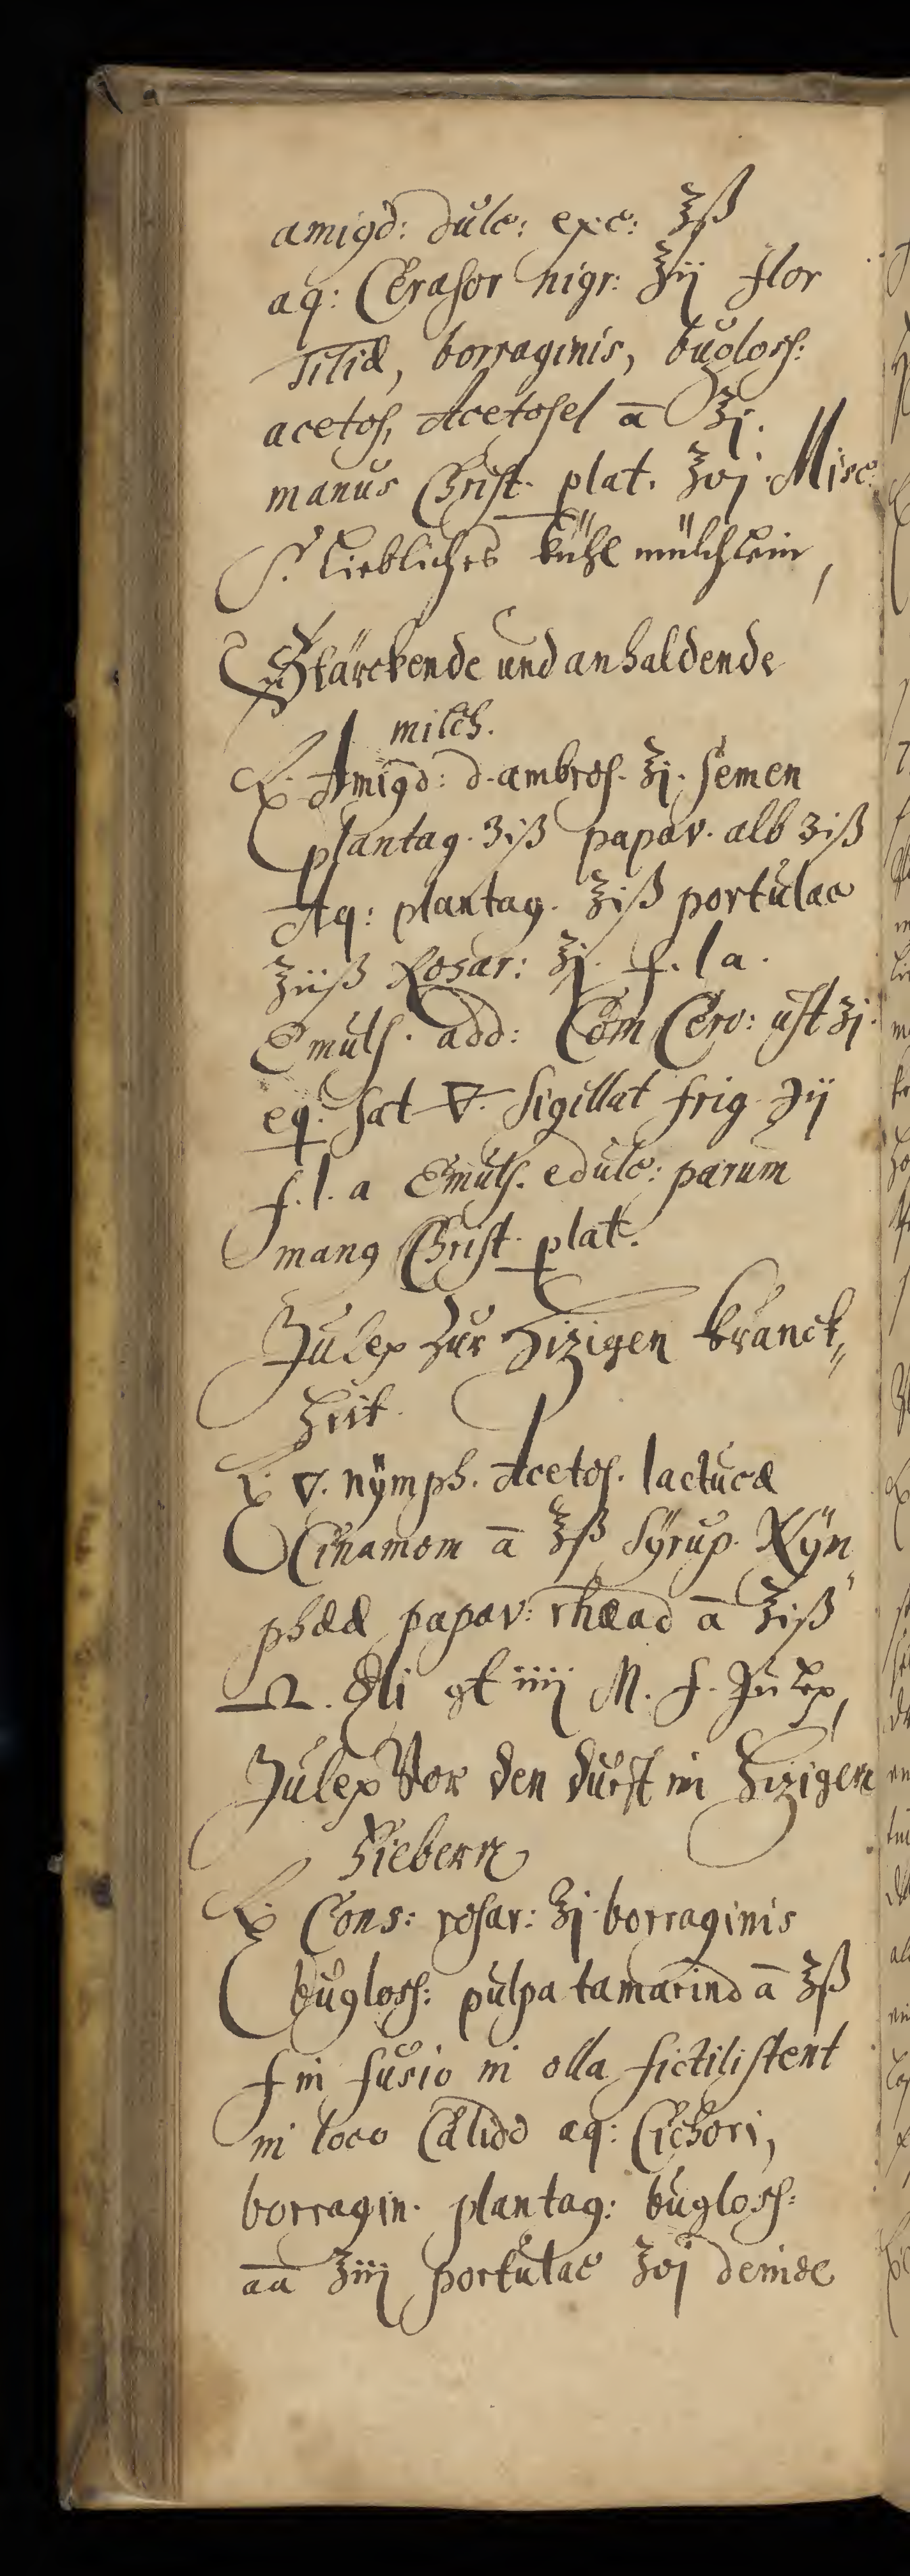 amigd: dulc: exc: ℥ß
aq: Cerasor nigr: ℥ij flor
Tiliæ, borraginis, bugloss:
acetos, Acetosel ā ℥j.
manus Christ. plat. ʒvj. Misc:
S. Liebliches kühl mülchlein,
Stärckende und anhaldende
milch.
℞. Amigd: d. ambros. ℥j. semen
plantag. ʒiß papav. alb ʒiß
Aq: plantag. ℥iß portulac
℥iiß Rosar: ℥j. f. l a.
Emuls. add: Corn Cerv: ust ʒj.
eq. sat 🜃. sigillat frig ℈ij
f. l. a Emuls. edulc: parum
man9 Christ. plat.
Julep zur hizigen kranck„
heit.
℞. 🜄. nÿmph. Acetos. lactucæ
Cinamom ā ℥ß Sÿrup. Nÿm
phææ papav: rhæad ā ℥iß
gt iiij M. f. Julep,
Julep Vor den durst in hizigen
Fiebern
℞ Cons: rosar: ℥j. borraginis
bugloss: pulpa tamarind ā ℥ß
f in fusio in olla fictili stent
in loco Calido aq: Cichori,
borragin. plantag: bugloss:
aā ℥iij portulac ℥vj deinde